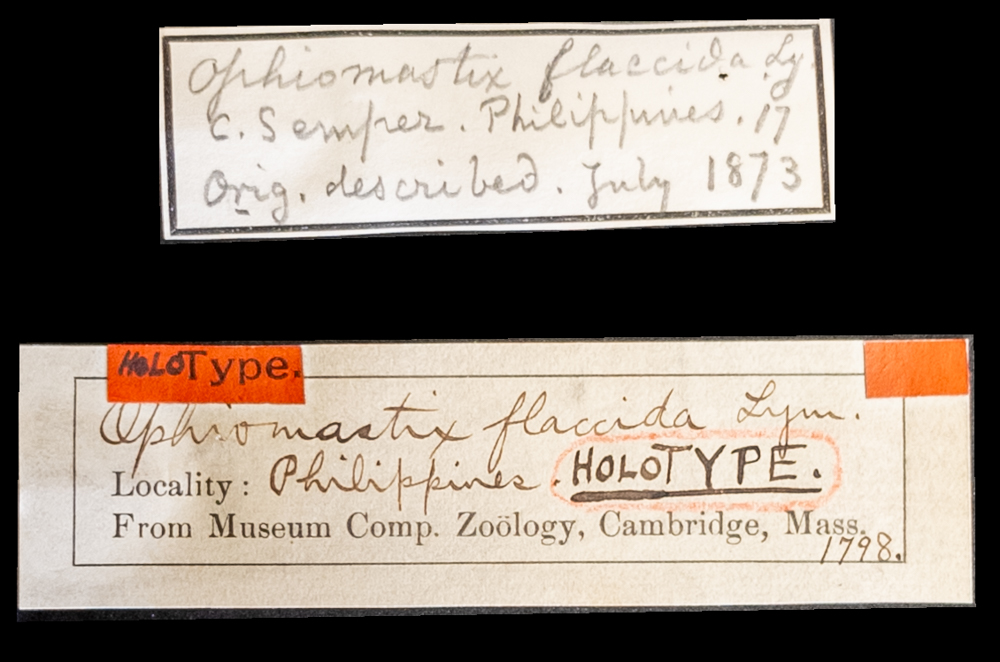 Ophiomastix flaccida Ly.
C. Semper. Philippines. 17
Orig. described. July 1873
HOLOType.
Ophiomastix flaccida Lym.
Locality: Philippines. HOLOTYPE.
From Museum Comp. Zoölogy, Cambridge, Mass.
1798.